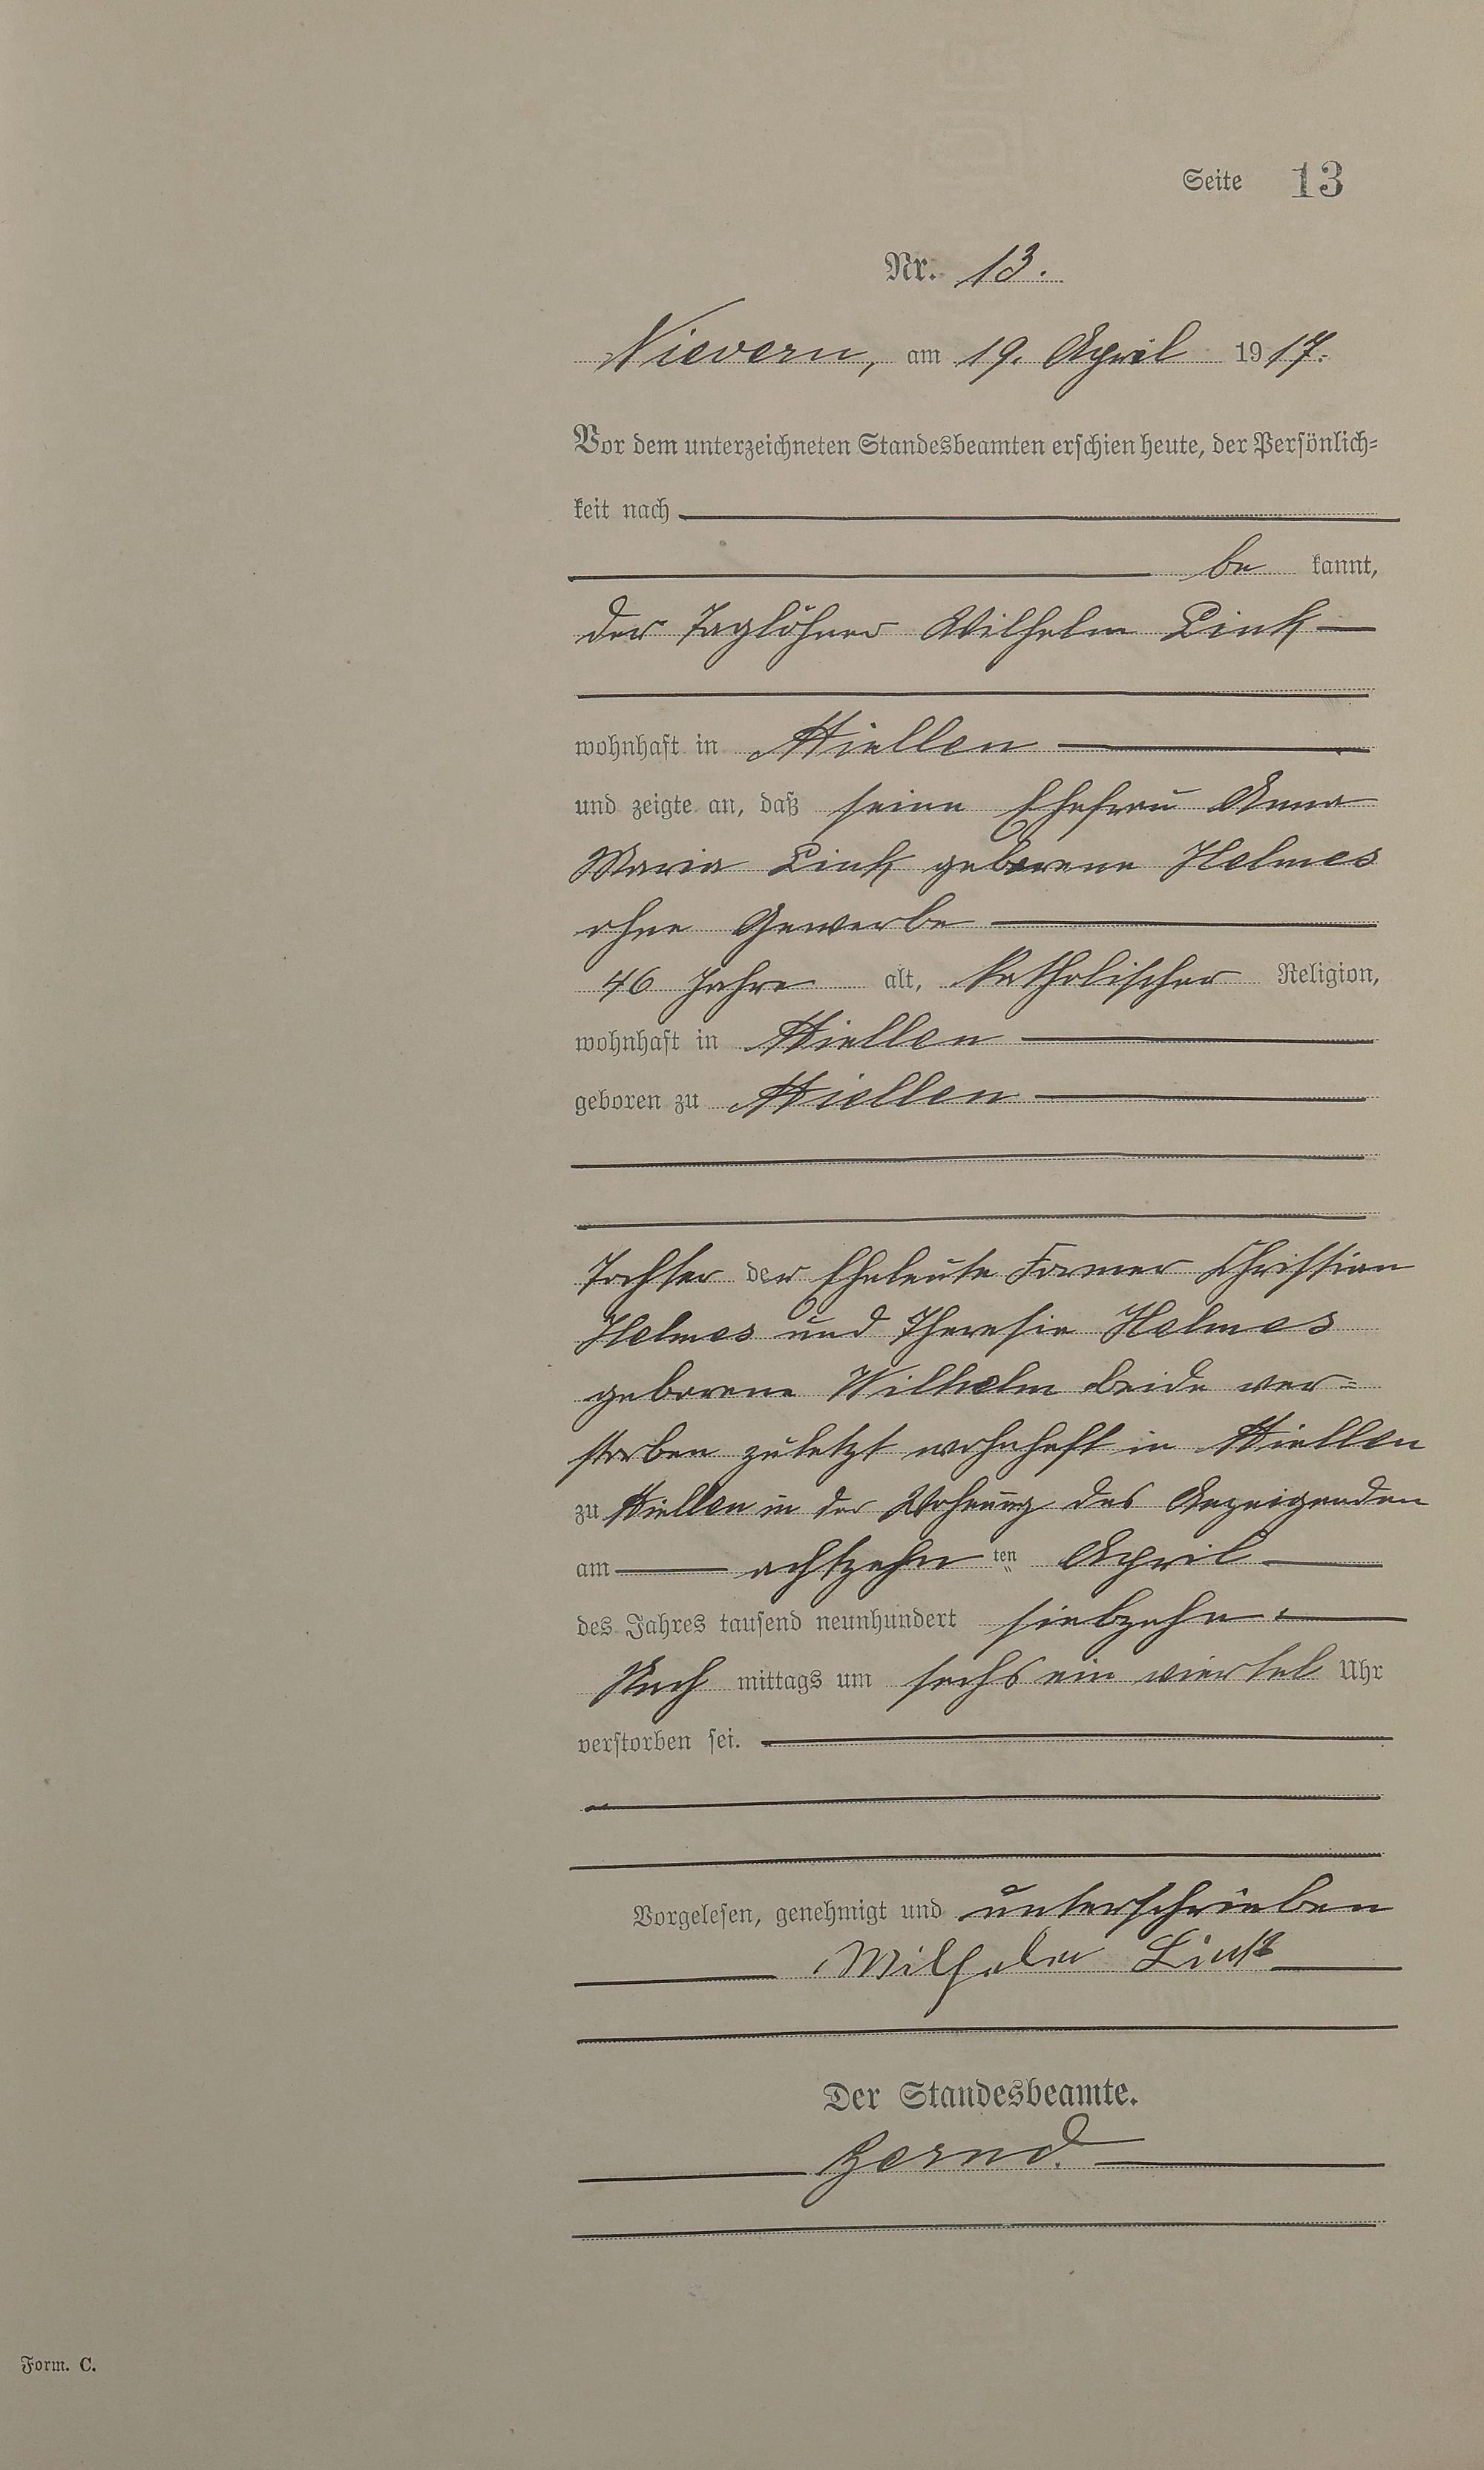 Seite 13
Nr. 13.
Nievern, am 19. April 1917.
Vor dem unterzeichneten Standesbeamten erschien heute, der Persönlich=
keit nach
be kannt,
der Taglöhner Wilhelm Link
wohnhaft in Miellen
und zeigte an, daß seine Ehefrau Anna
Maria Link geborene Helmes
ohne Gewerbe
46 Jahre alt, katholischer Religion,
wohnhaft in Miellen
geboren zu Miellen
Tochter der Eheleute Former Christian
Helmes und Theresia Helmes
geborene Wilhelm beide ver=
storben zuletzt wohnhaft in Miellen
zu Miellen in der Wohnung des Anzeigenden
am achtzehn ten April
des Jahres tausend neunhundert siebzehn
Nach mittags um sechs ein viertel Uhr
verstorben sei.
Vorgelesen, genehmigt und unterschrieben
Wilhelm Link
Der Standesbeamte.
Form. C.